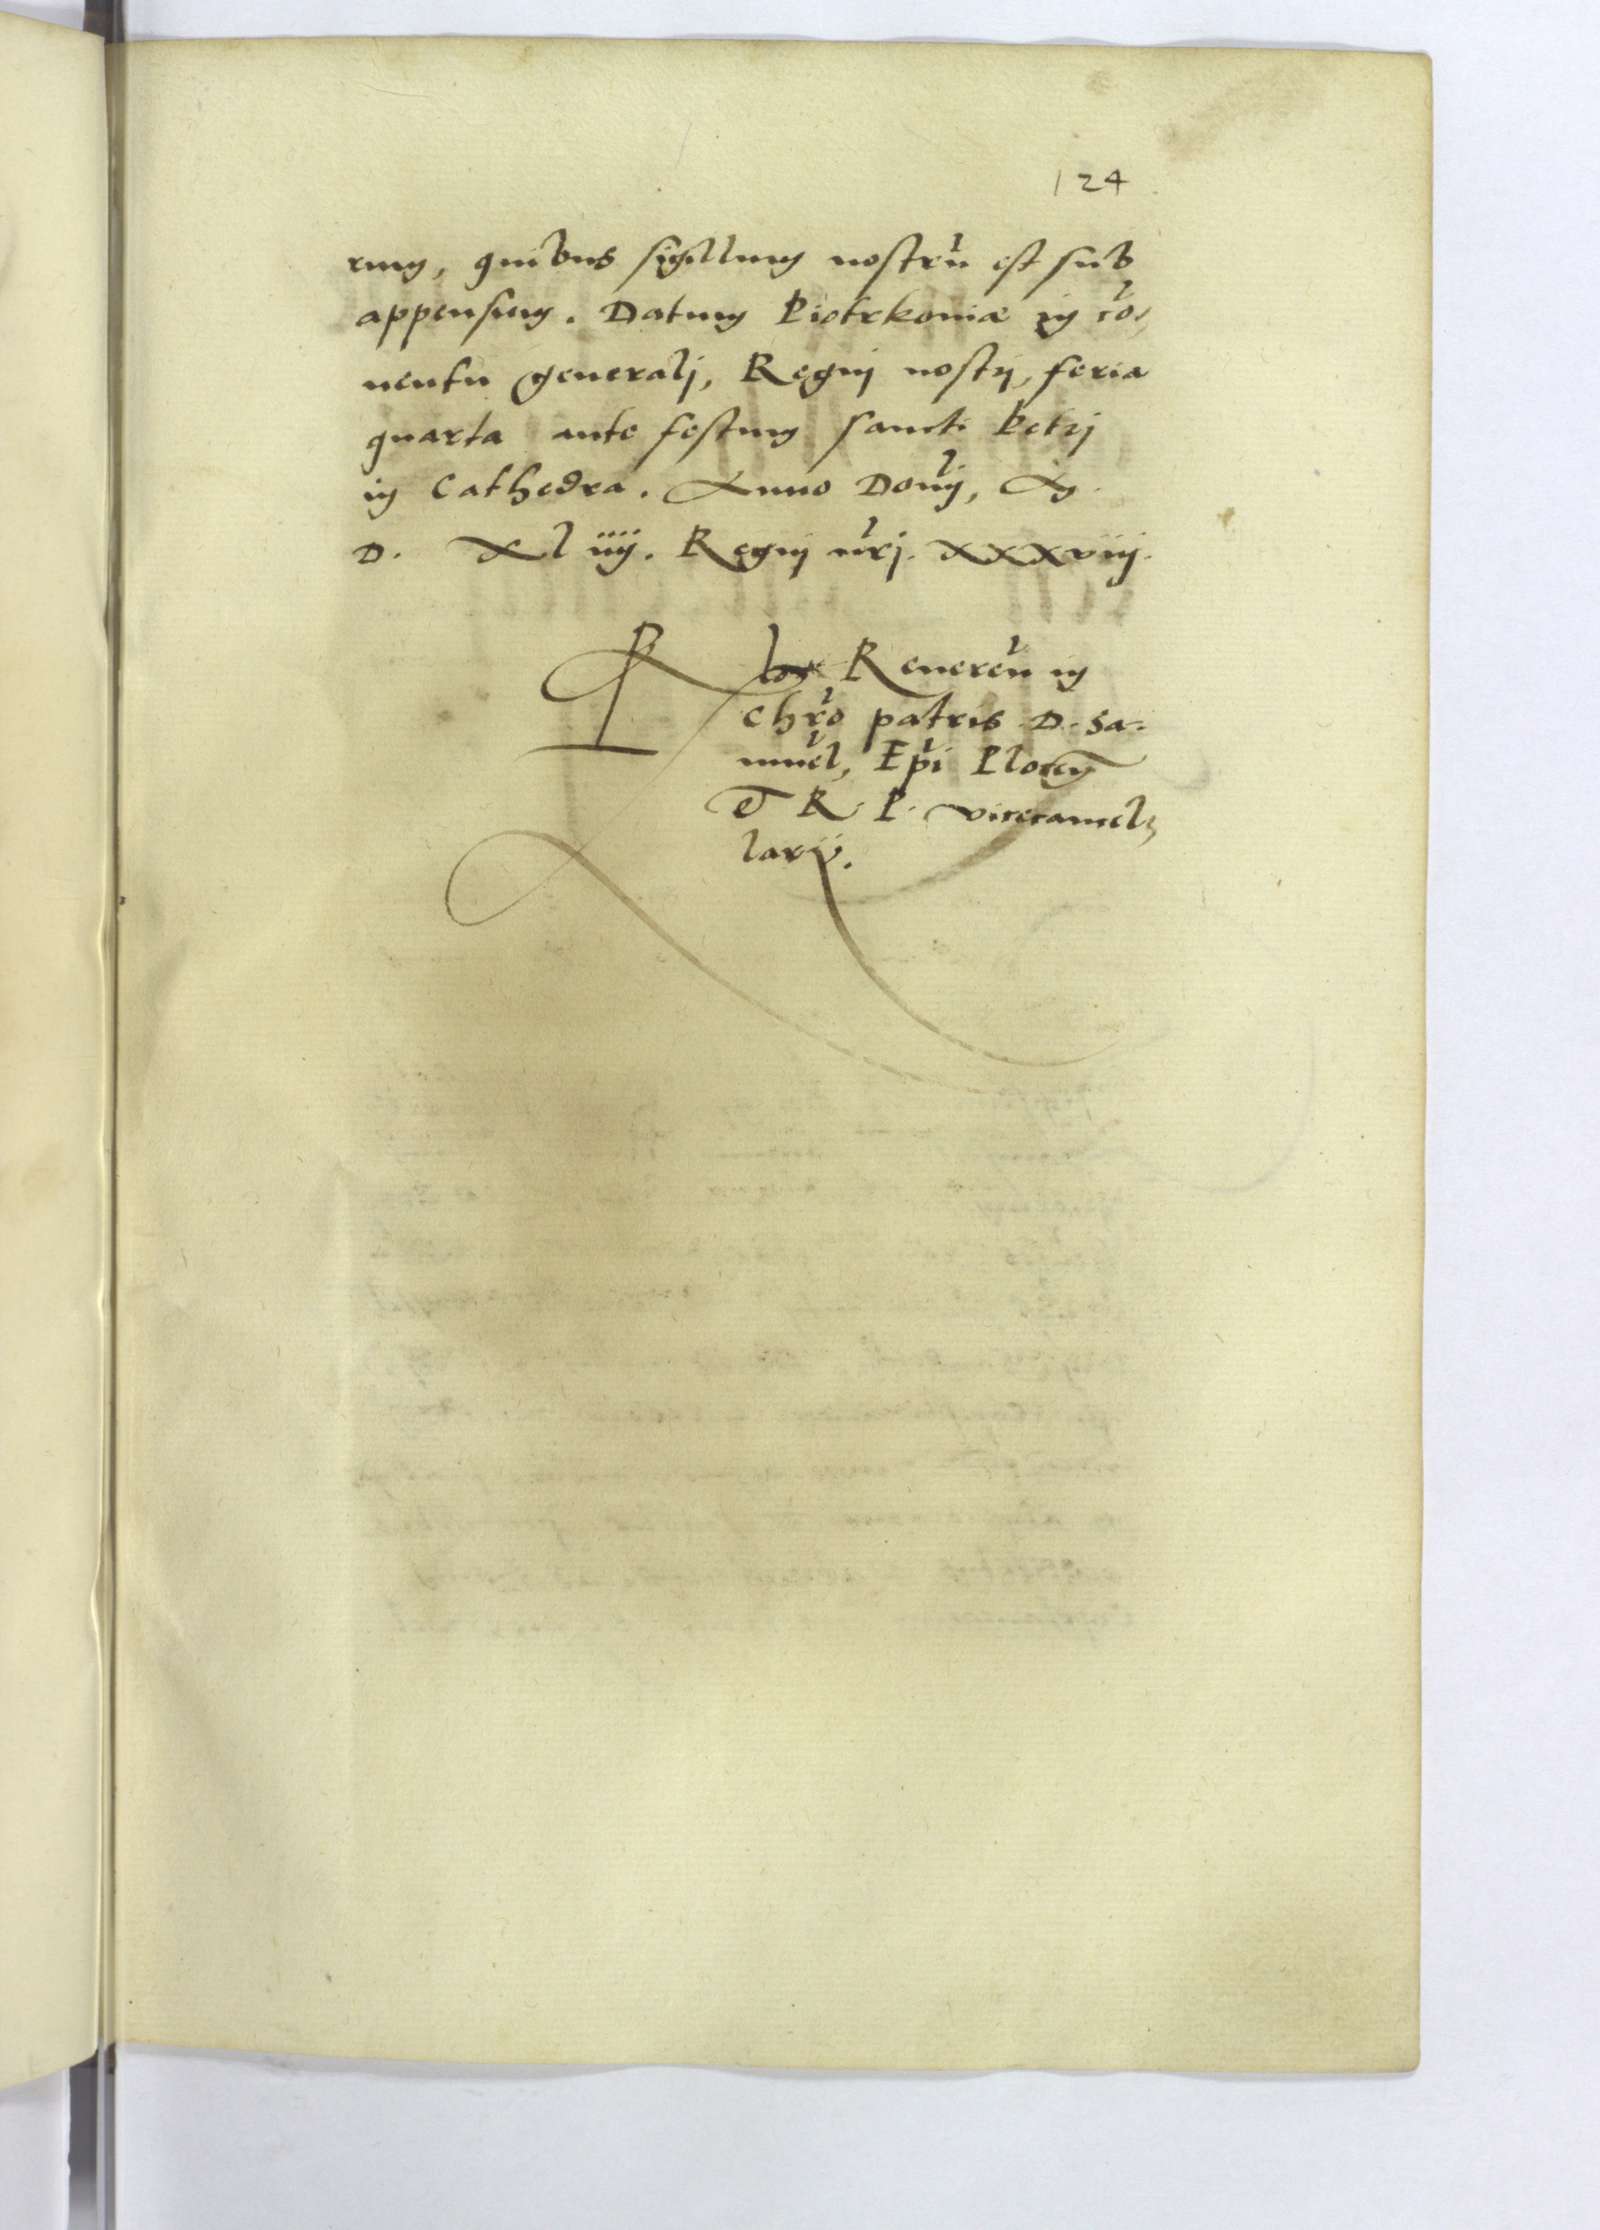 124
rum, quibus sigillum nostrũ est sub
appensum. Datum Piotrkoviæ in cõ⸗
ventu generalj, Regnj nostrj, feria
quarta ante festum sancti Petrj
in Cathedra. Anno Domĩ, M.
D. XLiiij. Regnj nrĩ. XXXviij.
R Reverẽn in
Chrõ patris D. Sa⸗
muel, Epĩ Plocen
et R. P. vicecancel⸗
larij.